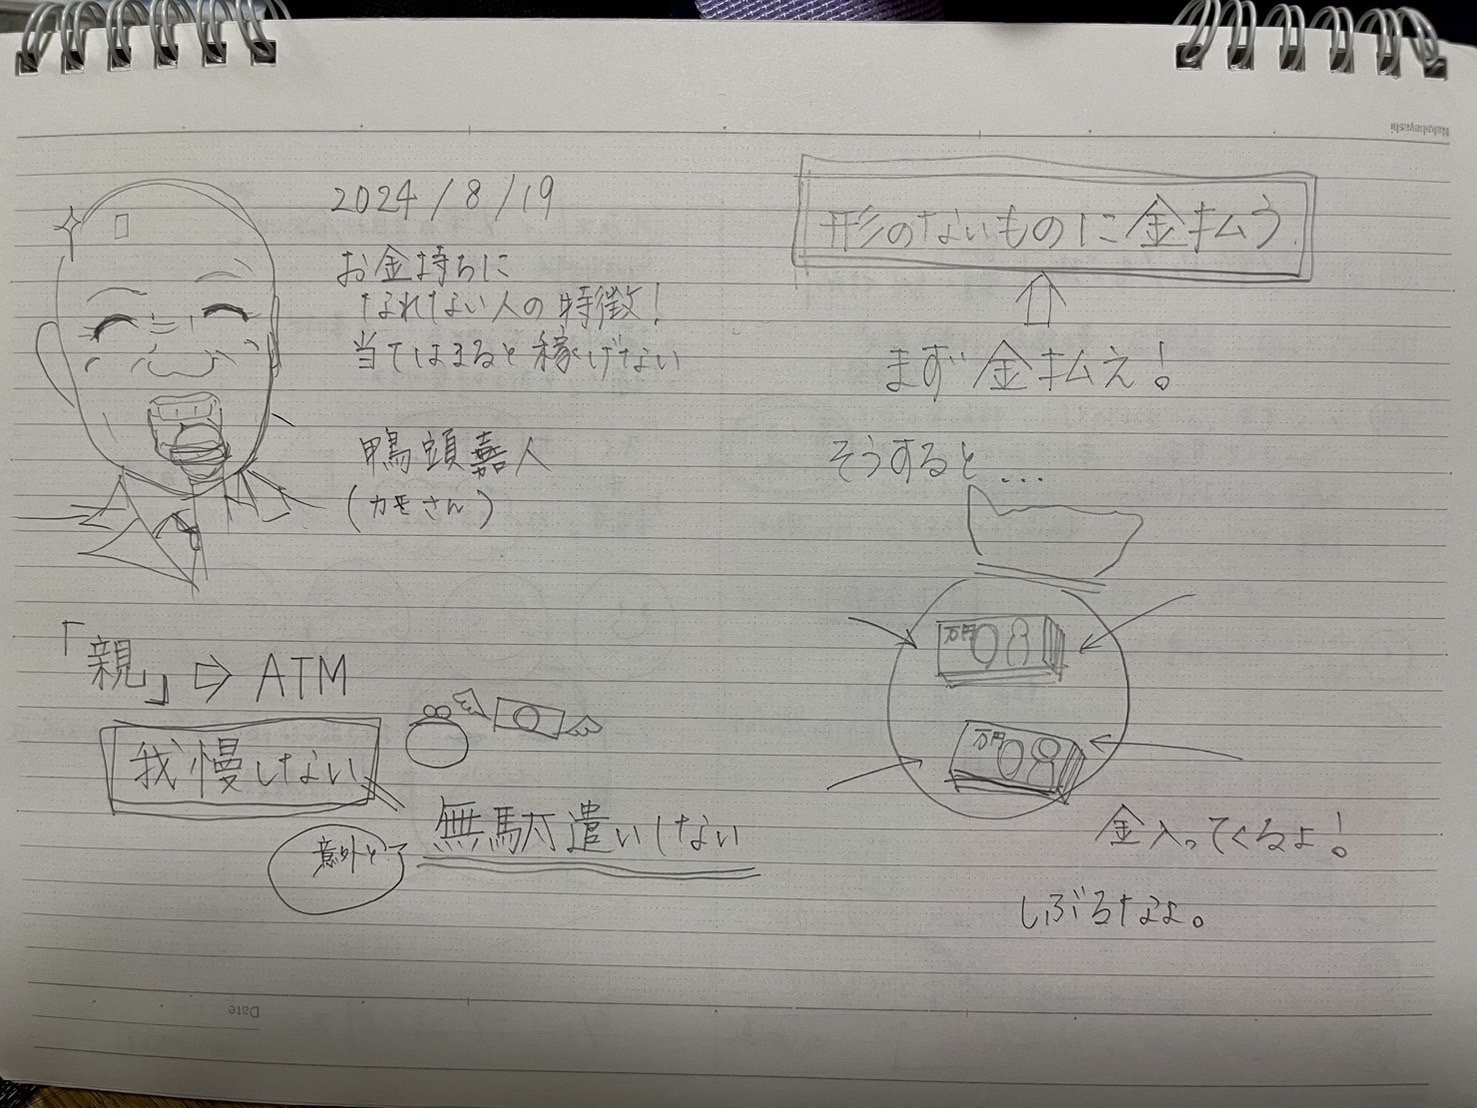 2024/8/19
お金持ちに
なれない人の特徴!
当てはまると稼げない
鴨頭嘉人
(カモさん)
「親」⇨ATM
我慢しない
意外と
無駄遣いしない
形のないものに金払う
まず金払え!
そうすると...
万円
万円
金入ってくるよ!
しぶるなよ。
Nakabayashi
Date